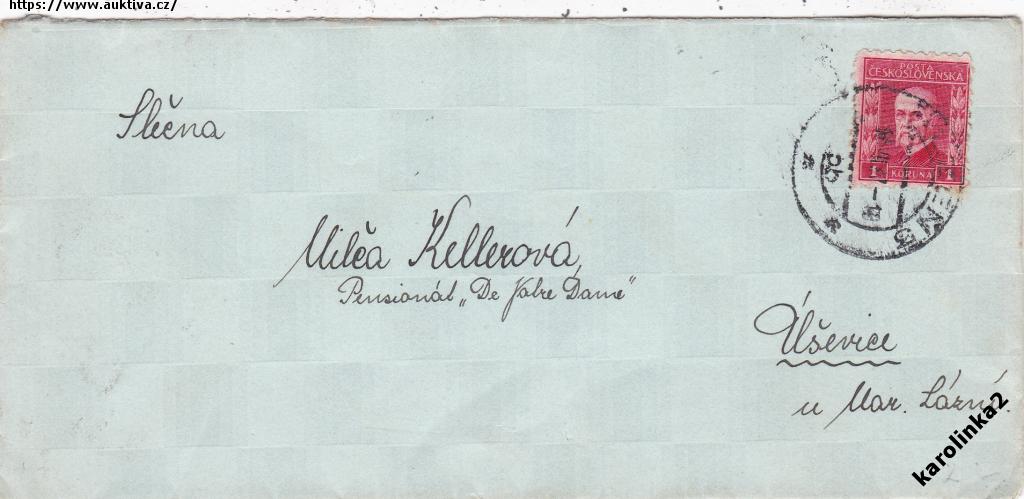 https://www.auktiva.cz/
Slečna
Milča Kellerová,
Pensionát „De Notre Dame"
Úševice
u Mar. Lázní.
POŠTA
ČESKOSLOVENSKÁ
1 KORUNA 1
karolinka2